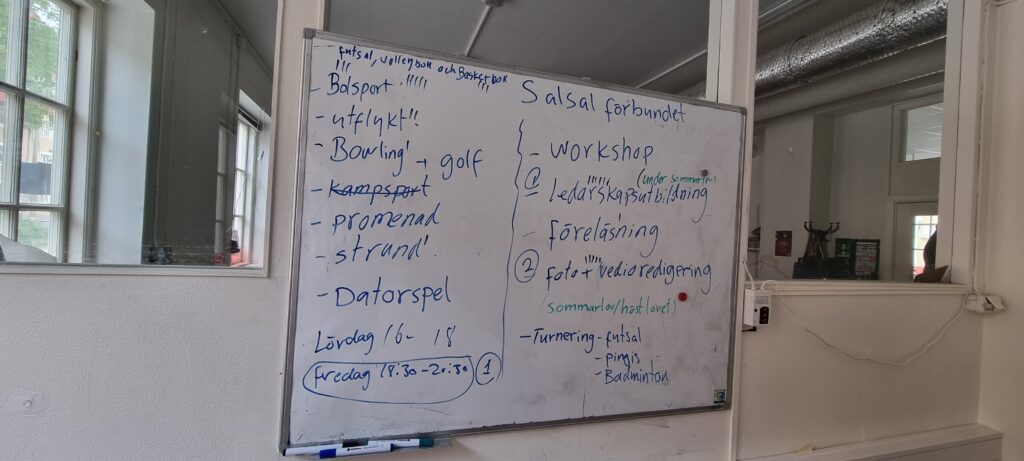 futsal, volleybox och Basketbox
- Bolsport
- utflykt!!
- Bowling + golf
- kampsport
- promenad
- strand
- Datorspel
Lördag 16 - 18
fredag 18:30 - 20:30 ①
Salsal förbundet
- workshop
(under sommarlov)
① ledarskapsutbildning
- föreläsning
② foto + vedioredigering
sommarlov/höstlovet)
- Turnering - futsal
- pingis
- Badminton